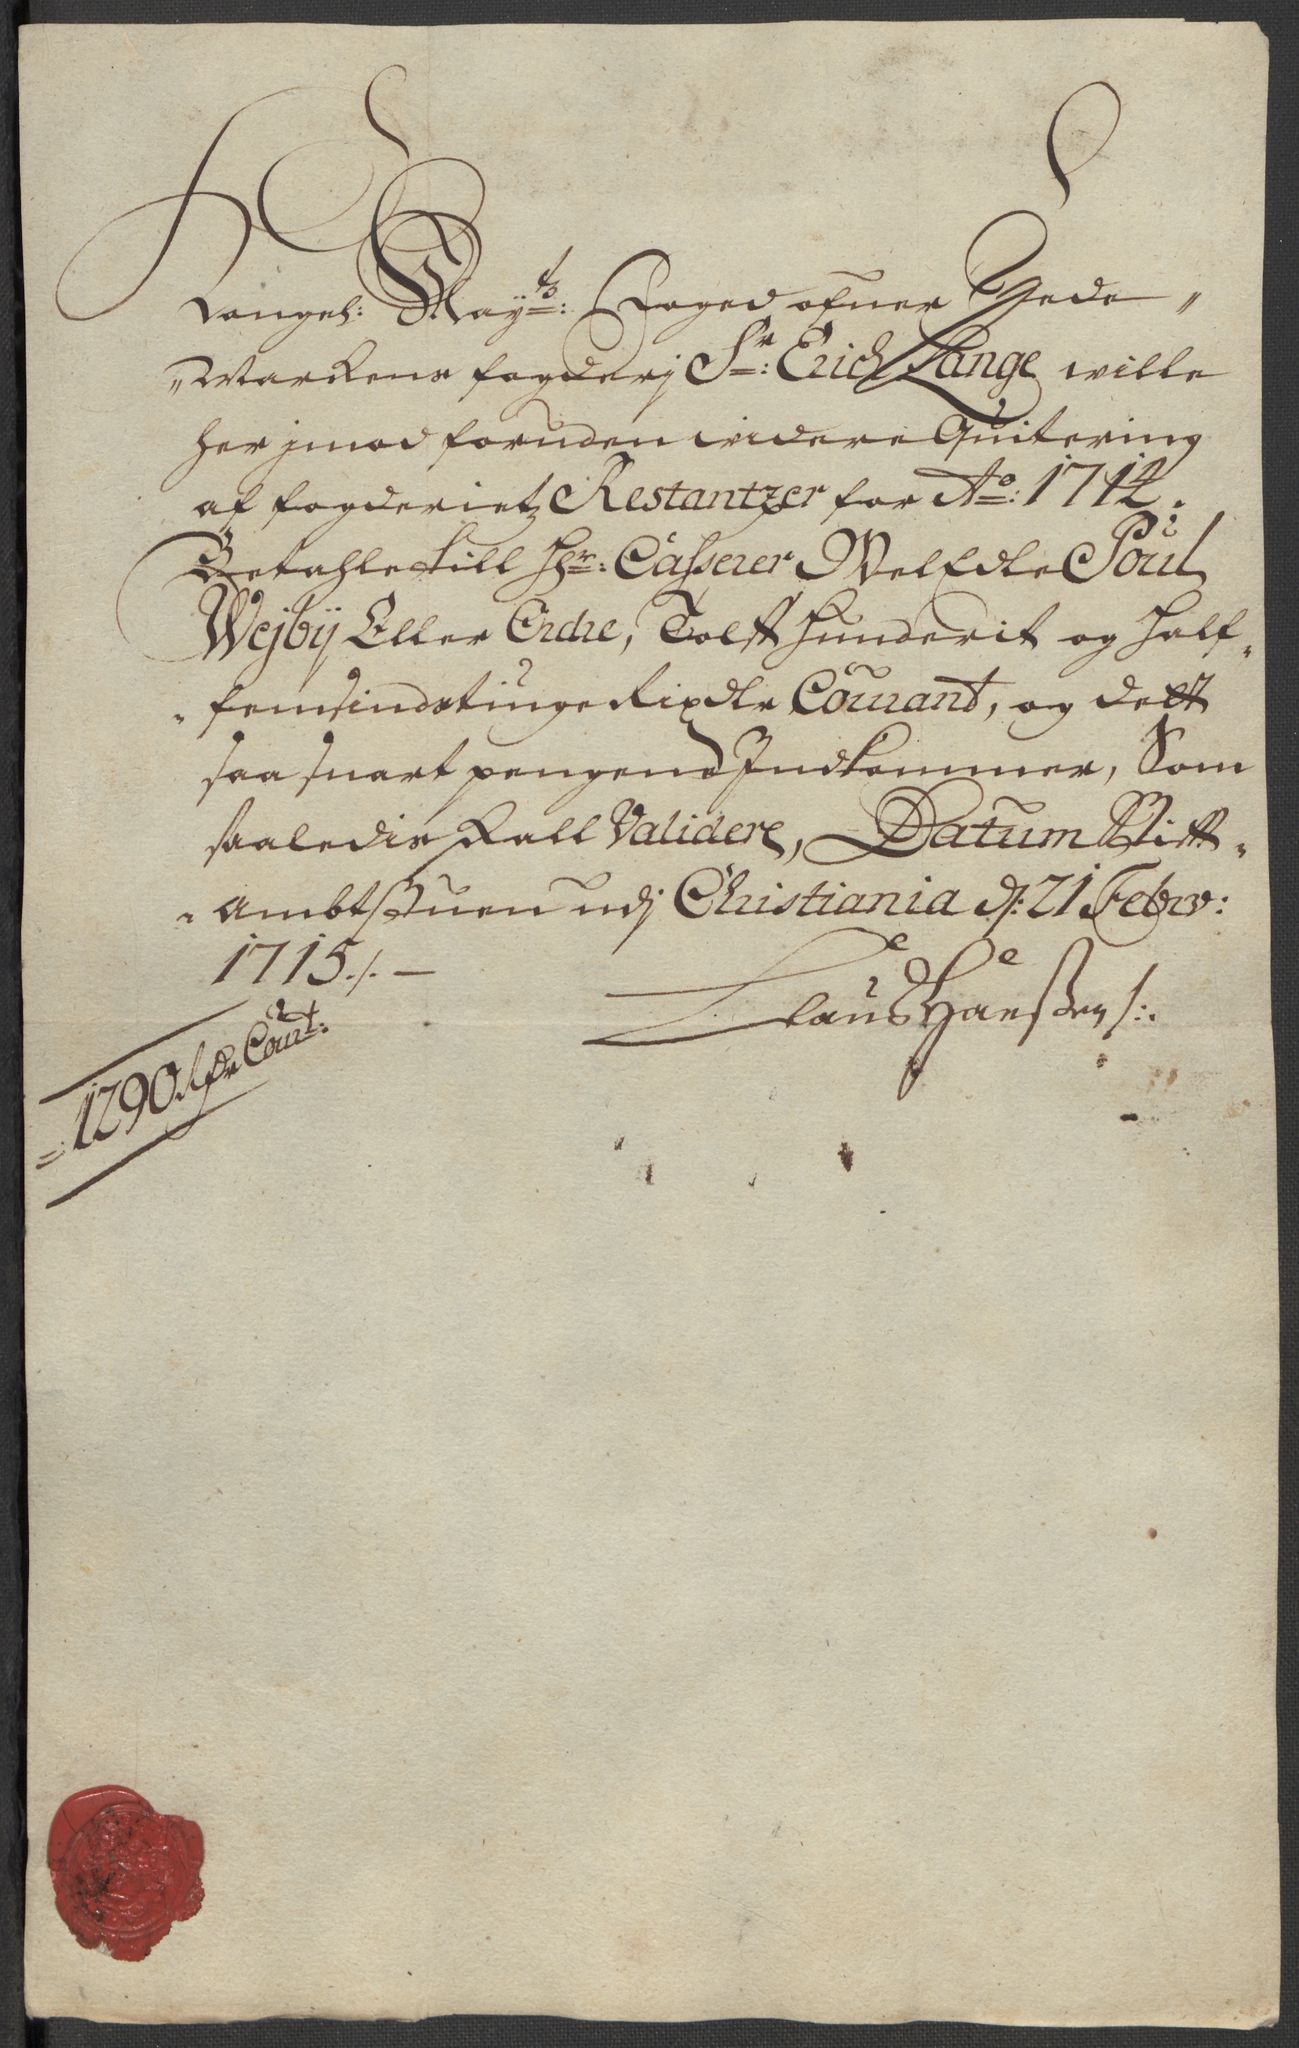 Kongel: Mayts: Foged ofuer Hede-
Marckens fogderj Sr: Erich Lange wille
her jmod foruden widere Quitering
af fogderietz Restantzer for Ao: 1714.
Betahle till Hr: Casserer WelEdle Poul
Wejbÿ Eller Ordre, Tolff hunderit og half-
femsindstiuge Rixdlr Courant, og dett
saa snart pengene Indkommer, Som
saaledis skall Validere, Datum Stift-
ambtstuen udj Christiania d: 21 Febrv:
1715 ./. —
Claus Hanssen /:.
= 1290 Rdr Court: